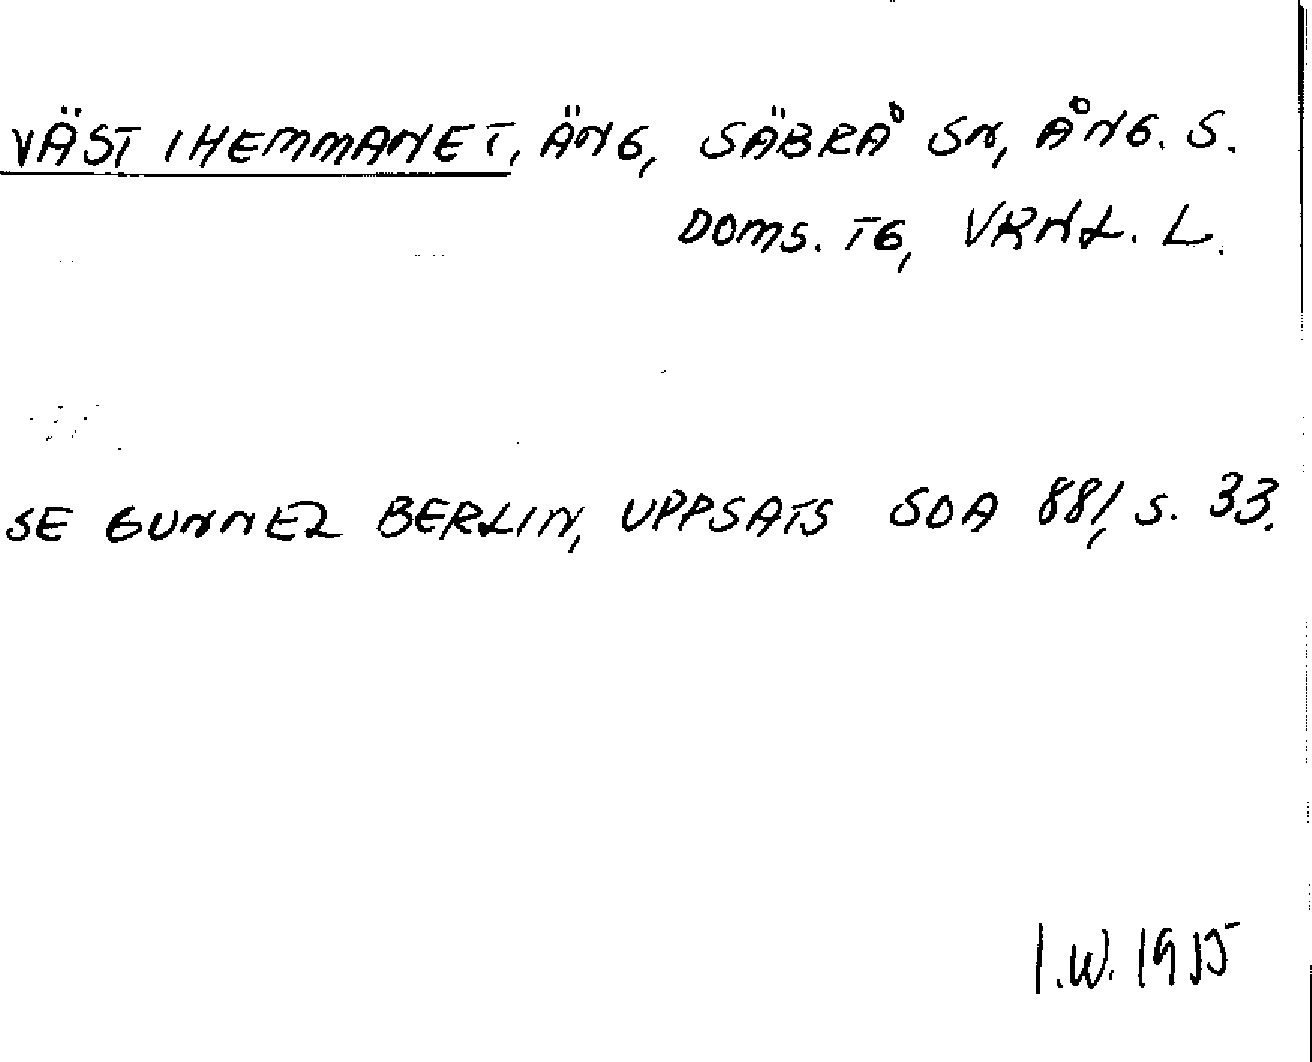 VÄST I HEMMANET, ÄNG, SÄBRÅ SN, ÅNG. S.
DOMS. TG, VRNL. L.
SE GUNNEL BERLIN, UPPSATS SOA 881, S. 33.
I.W. 1955